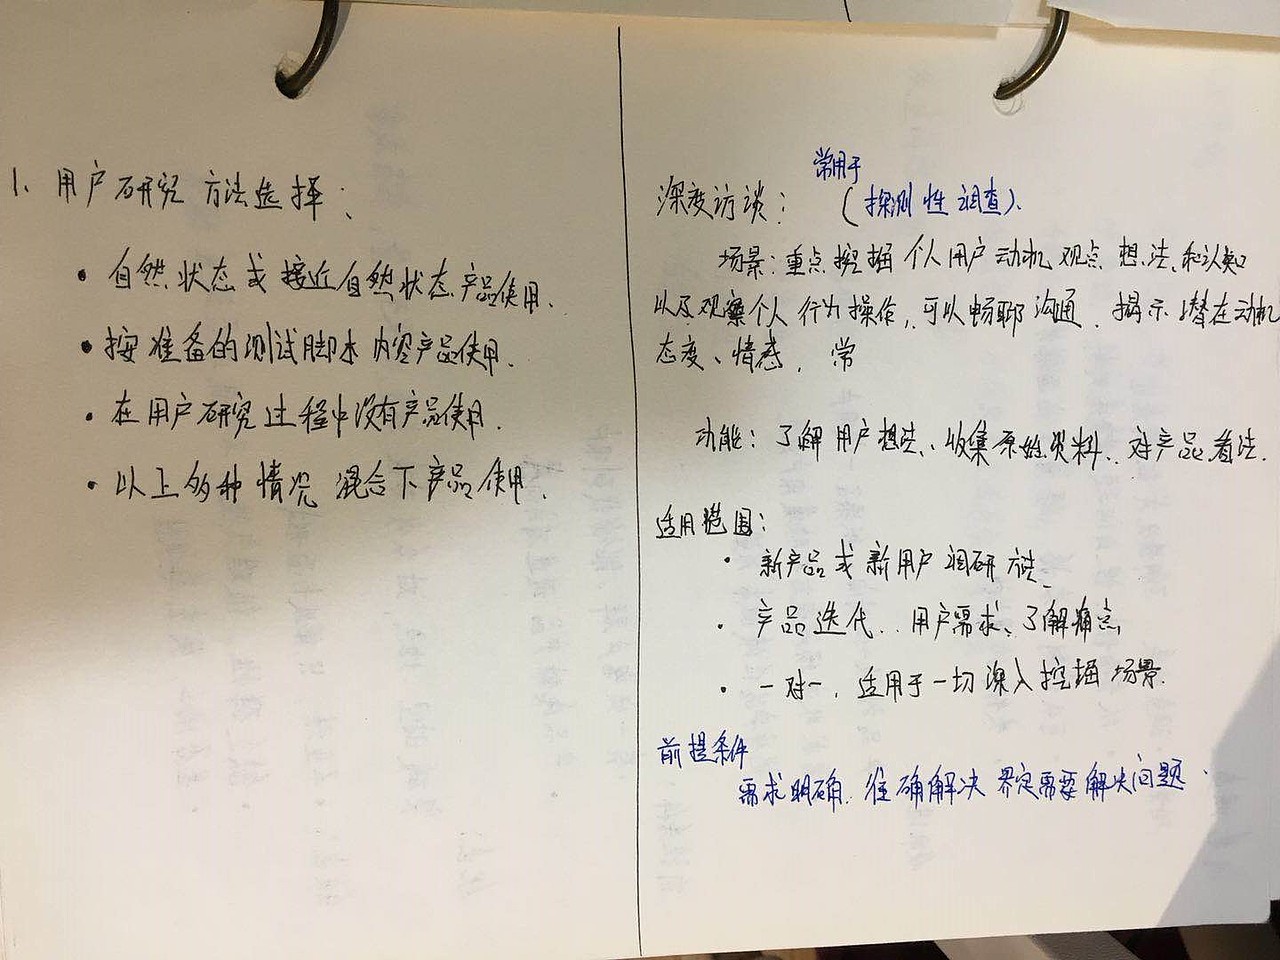 1、用户研究方法选择：
• 自然状态或接近自然状态产品使用、
• 按准备的测试脚本内容产品使用.
• 在用户研究过程中没有产品使用.
• 以上多种情况 混合下产品使用、
常用于
深度访谈：（探测性调查）.
场景：重点挖掘 个人用户动机 观点 想法、和认知
以及观察个人 行为操作，可以畅聊沟通、揭示潜在动机
态度、情感，常
功能：了解用户想法、收集原始资料、对产品看法.
适用范围：
• 新产品或新用户调研 方法、
• 产品迭代、.用户需求、了解痛点
• 一对一，适用于一切深入挖掘场景.
前提条件
需求明确. 准确解决 界定需要解决问题.